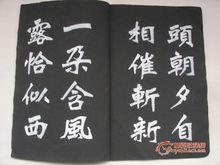 頭朝夕自
相催斬新
一朵含風
露恰似西